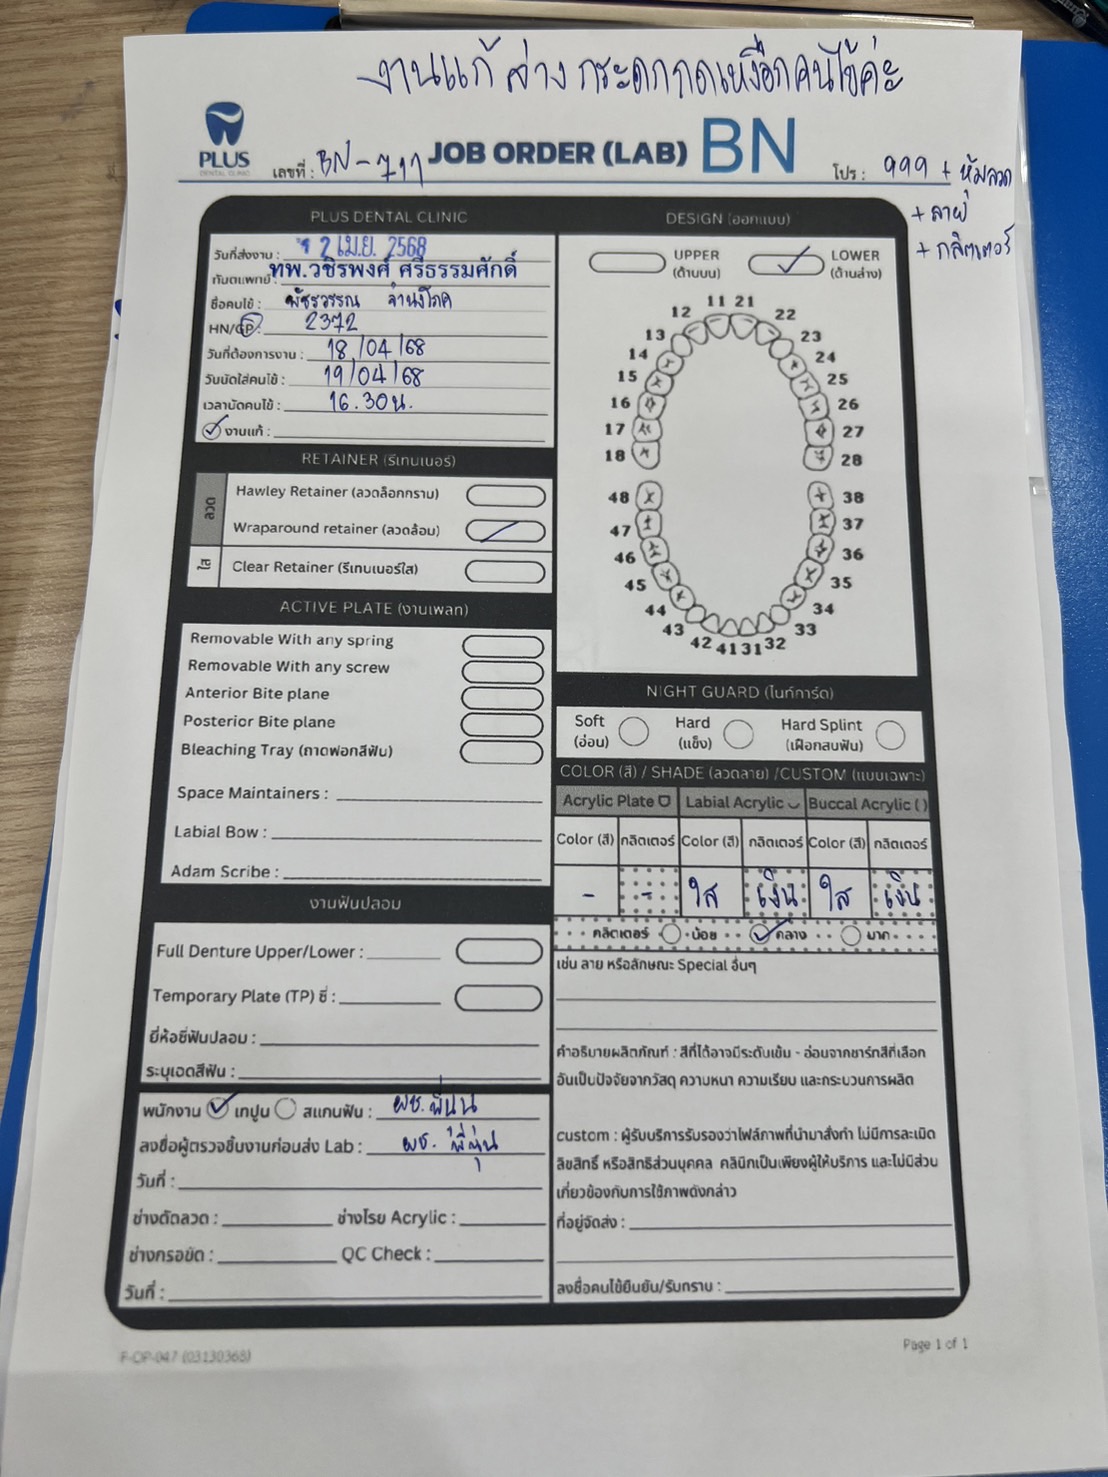 งานแก้ ล่าง กระดกกดเหงือกคนไข้ค่ะ
PLUS
DENTAL CLINIC
เลขที่ : BN-711
JOB ORDER (LAB) BN
โปร : 999 + หุ้มลวด
+ ลาย
+ กลิตเตอร์
PLUS DENTAL CLINIC
วันที่ส่งงาน : 12 เม.ย. 2568
ทันตแพทย์ : ทพ.วชิรพงศ์ ศรีธรรมศักดิ์
ชื่อคนไข้ : พัชรวรรณ จำนงโภค
HN/GP : 2372
วันที่ต้องการงาน : 18/04/68
วันนัดใส่คนไข้ : 19/04/68
เวลานัดคนไข้ : 16.30น.
งานแก้ :
RETAINER (รีเทนเนอร์)
ลวด
Hawley Retainer (ลวดล็อกกราม)
Wraparound retainer (ลวดล้อม)
ใส
Clear Retainer (รีเทนเนอร์ใส)
ACTIVE PLATE (งานเพลท)
Removable With any spring
Removable With any screw
Anterior Bite plane
Posterior Bite plane
Bleaching Tray (ถาดฟอกสีฟัน)
Space Maintainers :
Labial Bow :
Adam Scribe :
งานฟันปลอม
Full Denture Upper/Lower :
Temporary Plate (TP) ซี่ :
ยี่ห้อซี่ฟันปลอม :
ระบุเฉดสีฟัน :
พนักงาน เทปูน สแกนฟัน : ผช. พี่นุ่น
ลงชื่อผู้ตรวจชิ้นงานก่อนส่ง Lab : ผช.
วันที่ :
ช่างดัดลวด : ช่างโรย Acrylic :
ช่างกรอขัด : QC Check :
วันที่ :
DESIGN (ออกแบบ)
UPPER
(ด้านบน)
LOWER
(ด้านล่าง)
11 21
12 22
13 23
14 24
15 25
16 26
17 27
18 28
48 38
47 37
46 36
45 35
44 34
43 33
42 41 31 32
NIGHT GUARD (ไนท์การ์ด)
Soft
(อ่อน)
Hard
(แข็ง)
Hard Splint
(เฝือกสบฟัน)
COLOR (สี) / SHADE (ลวดลาย) /CUSTOM (แบบเฉพาะ)
Acrylic Plate Labial Acrylic Buccal Acrylic ( )
Color (สี) กลิตเตอร์ Color (สี) กลิตเตอร์ Color (สี) กลิตเตอร์
- - ใส เงิน ใส เงิน
กลิตเตอร์ น้อย กลาง มาก
เช่น ลาย หรือลักษณะ Special อื่นๆ
คำอธิบายผลิตภัณฑ์ : สีที่ได้อาจมีระดับเข้ม - อ่อนจากชาร์ทสีที่เลือก
อันเป็นปัจจัยจากวัสดุ ความหนา ความเรียบ และกระบวนการผลิต
custom : ผู้รับบริการรับรองว่าไฟล์ภาพที่นำมาสั่งทำ ไม่มีการละเมิด
ลิขสิทธิ์ หรือสิทธิส่วนบุคคล คลินิกเป็นเพียงผู้ให้บริการ และไม่มีส่วน
เกี่ยวข้องกับการใช้ภาพดังกล่าว
ที่อยู่จัดส่ง :
ลงชื่อคนไข้ยืนยัน/รับทราบ :
F-OP-047 (03130368)
Page 1 of 1